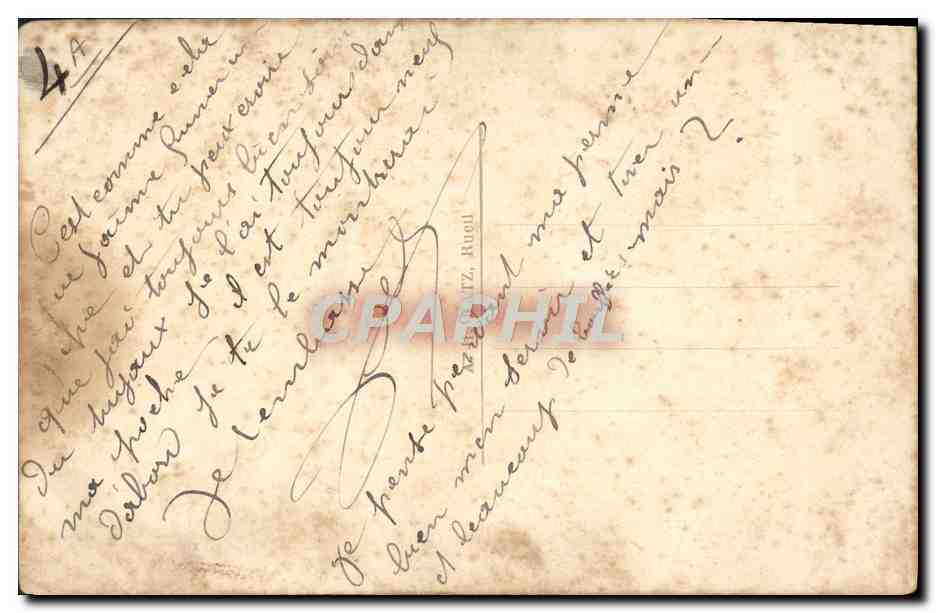 4 A
C'est comme cela
que j'aime
pipe et tu peux croire
que j'ai toujours bien soin
du tuyaux je l'ai toujours dans
ma poche il est toujours neuf
d'abord je te le montrerai
Je t'embrasse
Je pense pendant ma perme
bien m'en servir et tirer un
et beaucoup de mais ?
TZ, Rueil
CPAPHIL